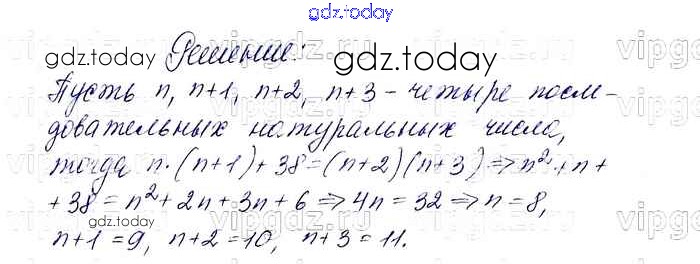 gdz.today
gdz.today Решение: gdz.today
Пусть n, n+1, n+2, n+3 - четыре после-
довательных натуральных числа,
тогда n·(n+1)+38=(n+2)(n+3)⇒n²+n+
+38=n²+2n+3n+6⇒4n=32⇒n=8,
gdz.today
n+1=9, n+2=10, n+3=11.